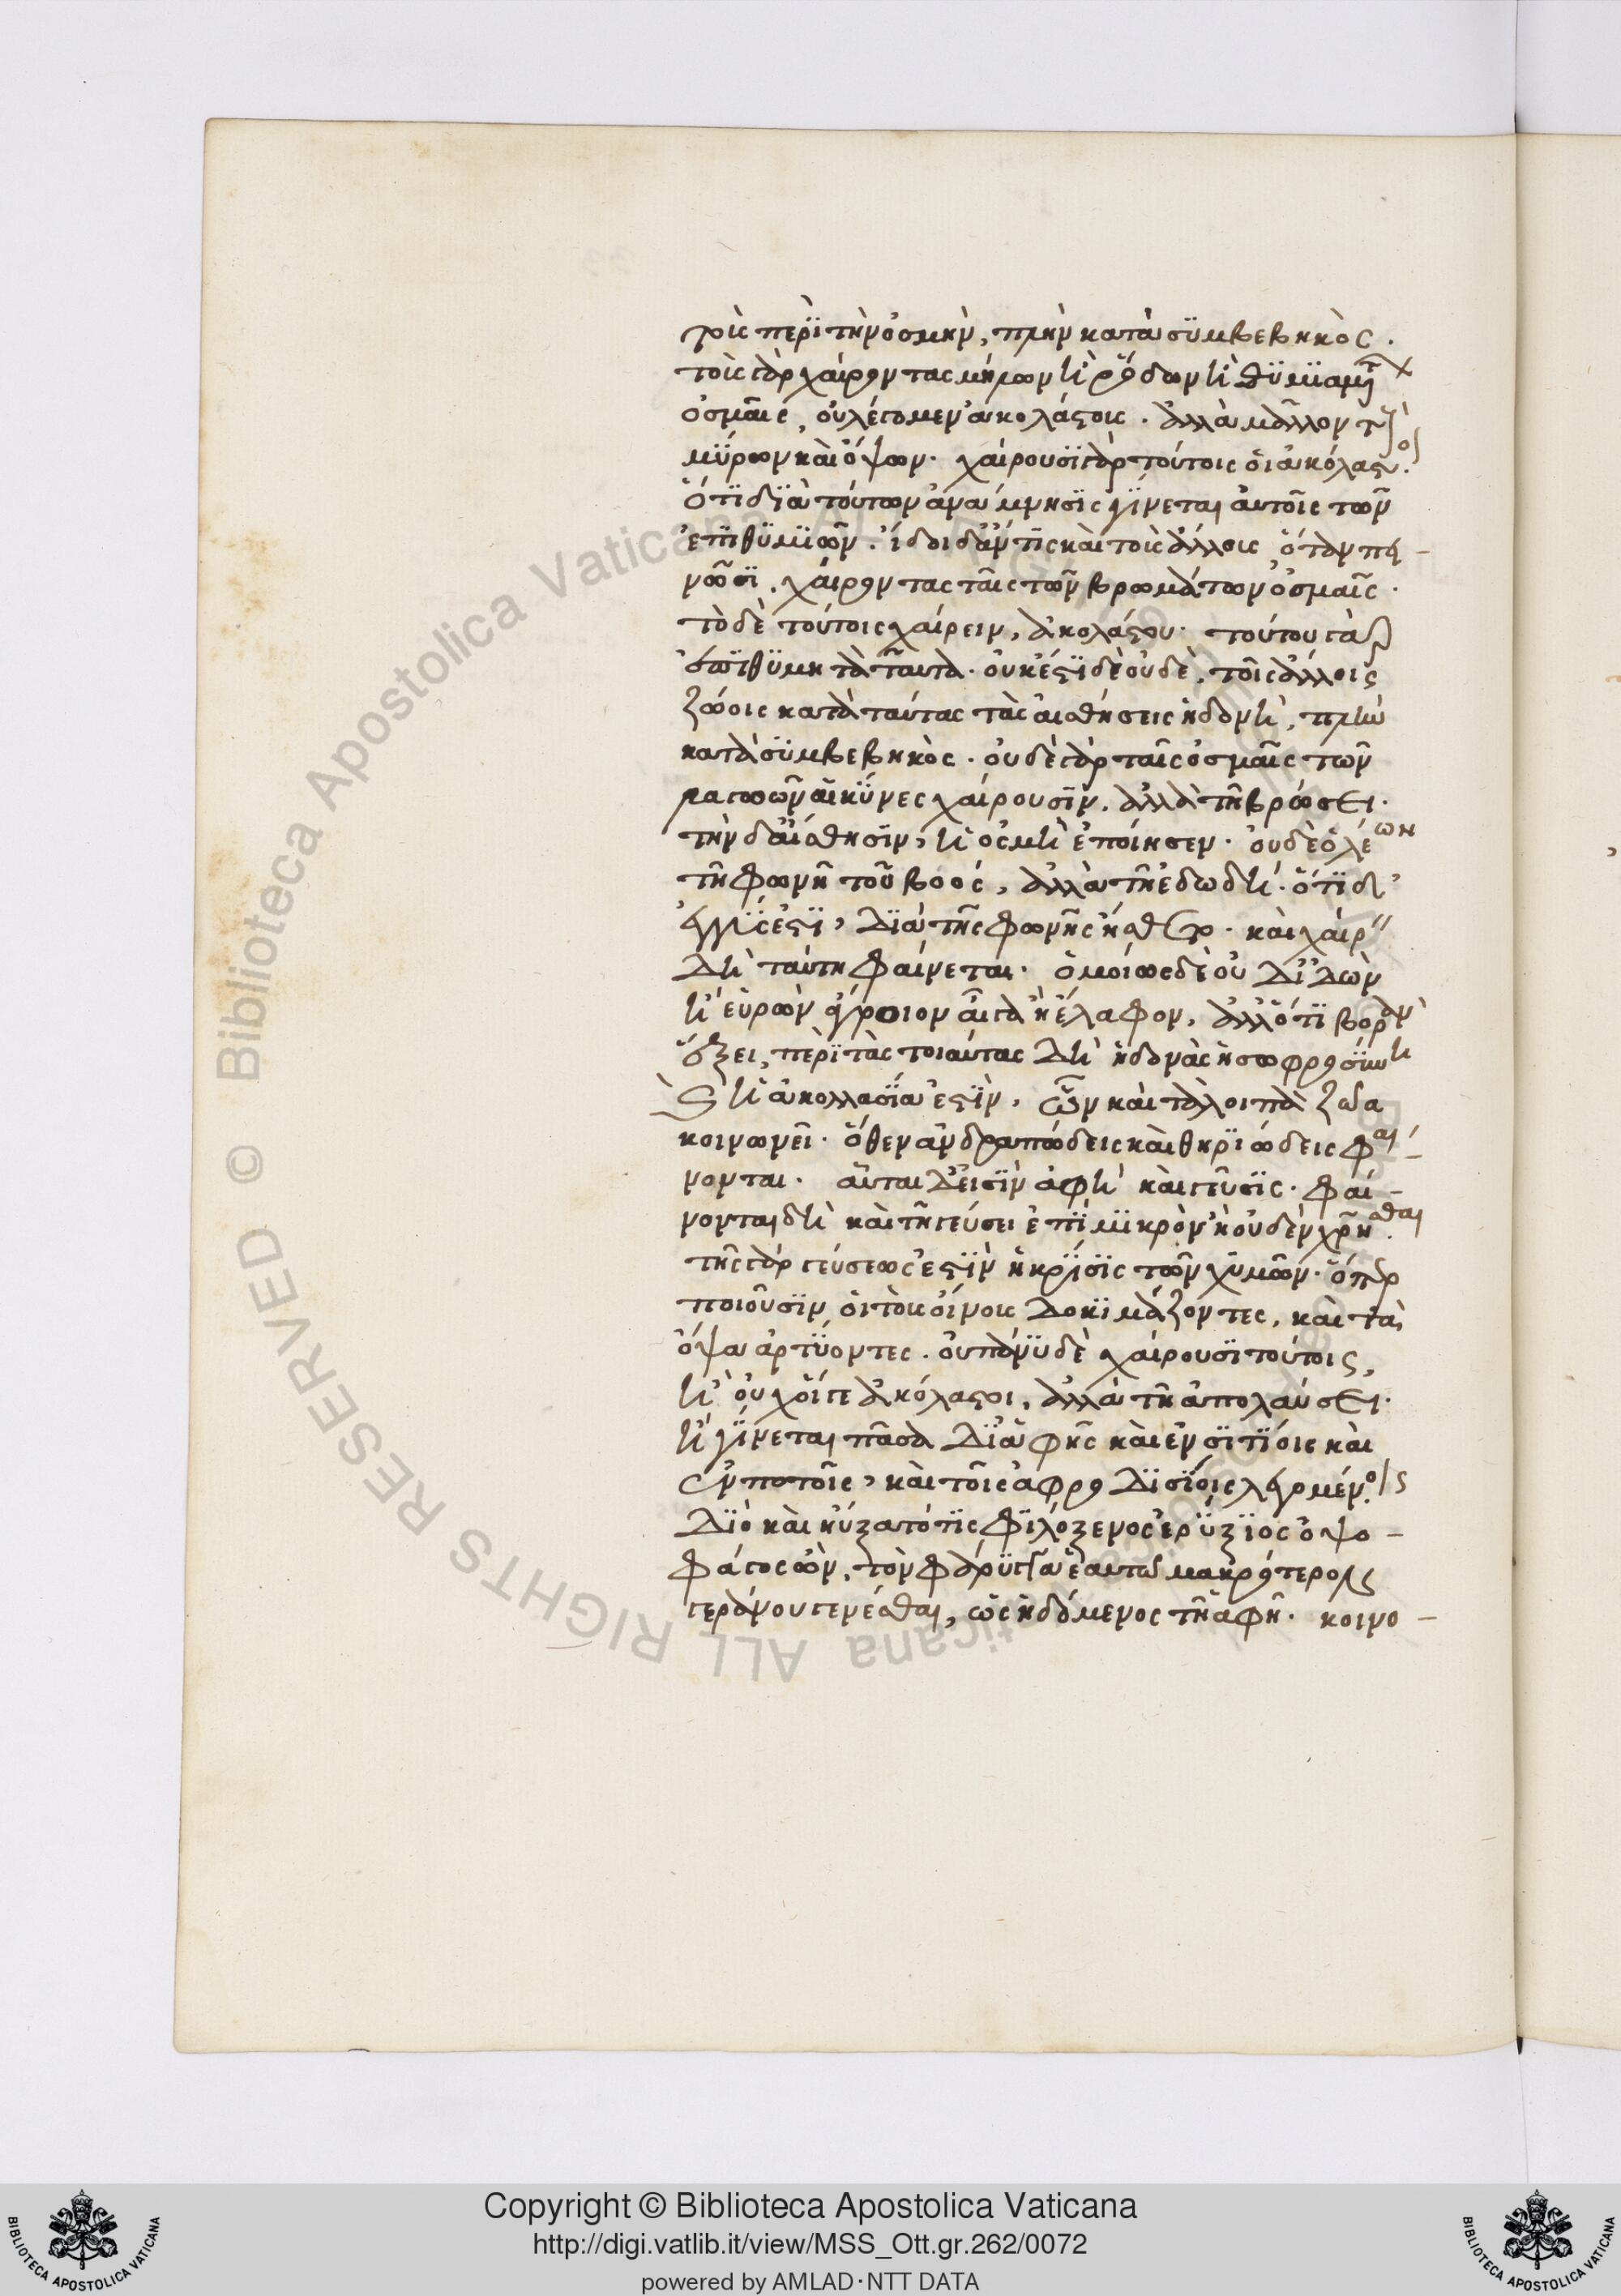 τοὺς περὶ τὴν ὀσμὴν, πλὴν κατὰ συμβεβηκὸς.
τοὺς γὰρ χαίροντας μήλων ἢ ῥόδων ἢ θυμιαμάτων
ὀσμαῖς, οὐ λέγομεν ἀκολάστους. ἀλλὰ μᾶλλον τοὺς
μύρων καὶ ὄψων. χαίρουσι γὰρ τούτοις οἱ ἀκόλαστοι.
ὅτι διὰ τούτων ἀνάμνησις γίνεται αὐτοῖς τῶν
ἐπιθυμιῶν. ἴδοι δ' ἄν τις καὶ τοὺς ἄλλους ὅταν πει-
νῶσι, χαίροντας ταῖς τῶν βρωμάτων ὀσμαῖς.
τὸ δὲ τούτοις χαίρειν, ἀκολάστου. τούτου γὰρ
ἐπιθυμητὰ ταῦτα. οὐκ ἔστι δὲ οὐδὲ, τοῖς ἄλλοις
ζώοις κατὰ ταύτας τὰς αἰσθήσεις ἡδονὴ, πλὴν
κατὰ συμβεβηκὸς. οὐδὲ γὰρ ταῖς ὀσμαῖς τῶν
λαγωῶν αἱ κύνες χαίρουσιν, ἀλλὰ τῆ βρώσει.
τὴν δ' αἴσθησιν, ἡ ὀσμὴ ἐποίησεν. οὐδὲ ὁ λέων
τῆ φωνῆ τοῦ βοός, ἀλλὰ τῆ ἐδωδῆ. ὅτι δ'
ἐγγύς ἐστι, διὰ τῆς φωνῆς ἤσθετο. καὶ χαίρειν
δὴ ταύτη φαίνεται. ὁμοίως δὲ οὐδ' ἰδὼν
ἢ εὑρὼν ἄγριον αἶγα ἢ ἔλαφον, ἀλλ' ὅτι βορὰν
ἕξει, περὶ τὰς τοιαύτας δὴ ἡδονὰς ἡ σωφροσύνη
καὶ ἡ ἀκολλασία ἐστὶν, ὧν καὶ τὰ λοιπὰ ζῶα
κοινωνεῖ. ὅθεν ἀνδραπώδεις καὶ θηριώδεις φαί-
νονται. αὗται δ' εἰσὶν ἁφὴ καὶ γεῦσις. φαί-
νονται δὴ καὶ τῆ γεύσει ἐπὶ μικρὸν ἢ οὐδὲν χρῆσθαι.
τῆς γὰρ γεύσεώς ἐστὶν ἡ κρίσις τῶν χυμῶν. ὅπερ
ποιοῦσιν οἱ τοὺς οἴνους δοκιμάζοντες, καὶ τὰ
ὄψα ἀρτύοντες. οὐ πάνυ δὲ χαίρουσι τούτοις,
ἢ οὐχ οἵ γε ἀκόλαστοι, ἀλλὰ τῆ ἀπολαύσει.
ἣ γίνεται πᾶσα δι' ἁφῆς καὶ ἐν σιτίοις καὶ
ἐν ποτοῖς, καὶ τοῖς ἀφροδισίοις λεγομένοις.
διὸ καὶ ηὔξατό τις φιλόξενος ἐρύξιος ὀψο-
φάγος ὢν, τὸν φάρυγγα ἑαυτῶ μακρότερον
γεράνου γενέσθαι, ὡς ἡδόμενος τῆ ἁφῆ. κοινο-
Copyright © Biblioteca Apostolica Vaticana
http://digi.vatlib.it/view/MSS_Ott.gr.262/0072
powered by AMLAD·NTT DATA